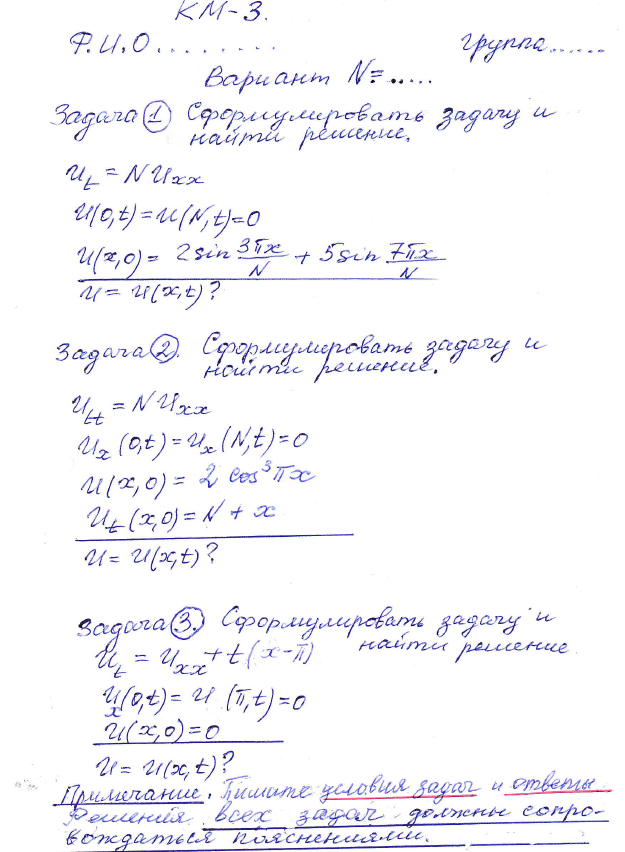 КМ-3.
Ф.И.О........ группа......
Вариант N=.....
Задача 1 Сформулировать задачу и
найти решение.
u_t = N u_xx
u(0,t) = u(N,t)=0
u(x,0) = 2 sin 3πx/N + 5 sin 7πx/N
u = u(x,t)?
Задача 2. Сформулировать задачу и
найти решение.
u_tt = N u_xx
u_x (0,t) = u_x (N,t) = 0
u(x,0) = 2 cos³ πx
u_t (x,0) = N + x
u = u(x,t)?
Задача 3. Сформулировать задачу и
найти решение
u_t = u_xx + t(x-π)
u_x (0,t) = u (π,t) = 0
u(x,0) = 0
u = u(x,t)?
Примечание. Пишите условия задач и ответы
Решения всех задач должны сопро-
вождаться пояснениями.